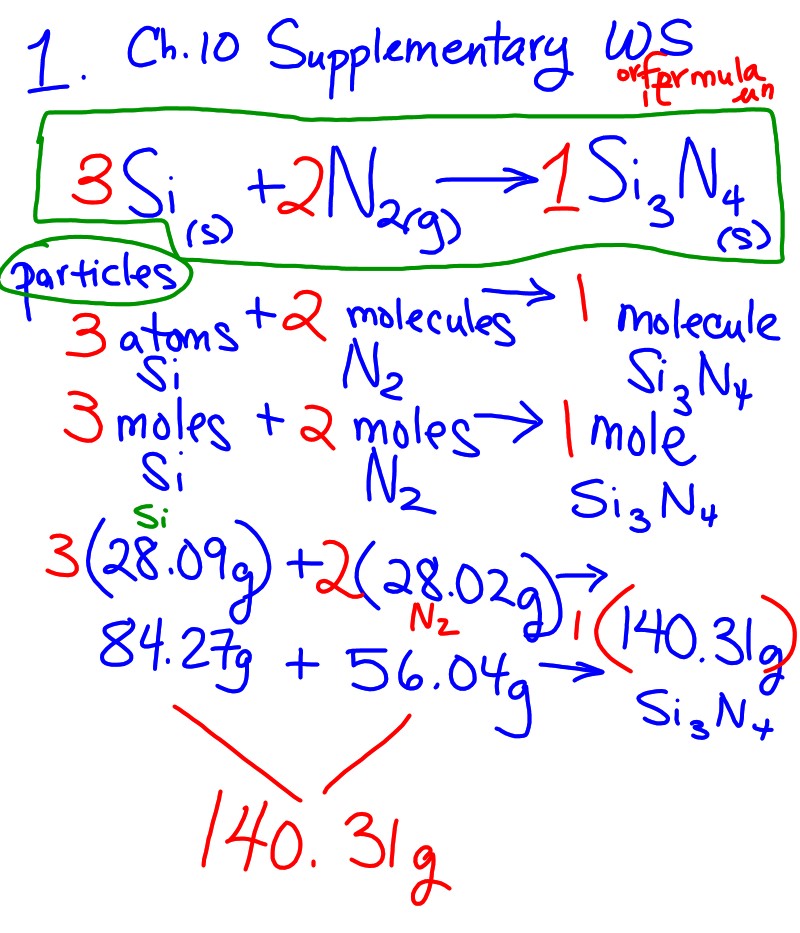 1. Ch.10 Supplementary WS
or formula
un it
3Si(s) + 2N₂(g) → 1Si₃N₄(s)
particles
3 atoms + 2 molecules → 1 molecule
Si N₂ Si₃N₄
3 moles + 2 moles → 1 mole
Si N₂ Si₃N₄
Si
3(28.09g) + 2(28.02g) → 1(140.31g)
N₂
84.27g + 56.04g → Si₃N₄
140.31g